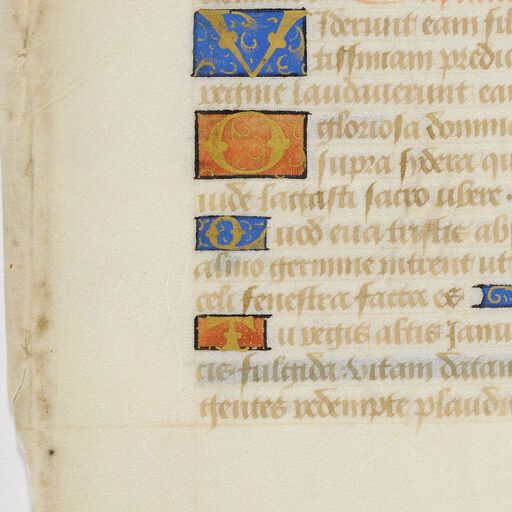 Viderunt eam fil
tissimam predic
regine laudauerunt ea
O gloriosa domin
supra sydera qu
uide lactasti sacro ubere.
Quod eua tristis abs
almo germine intrent ut
celi fenestra facta es
Tu regis altis janu
cis fulgida. vitam datam
gentes redempte plaudi